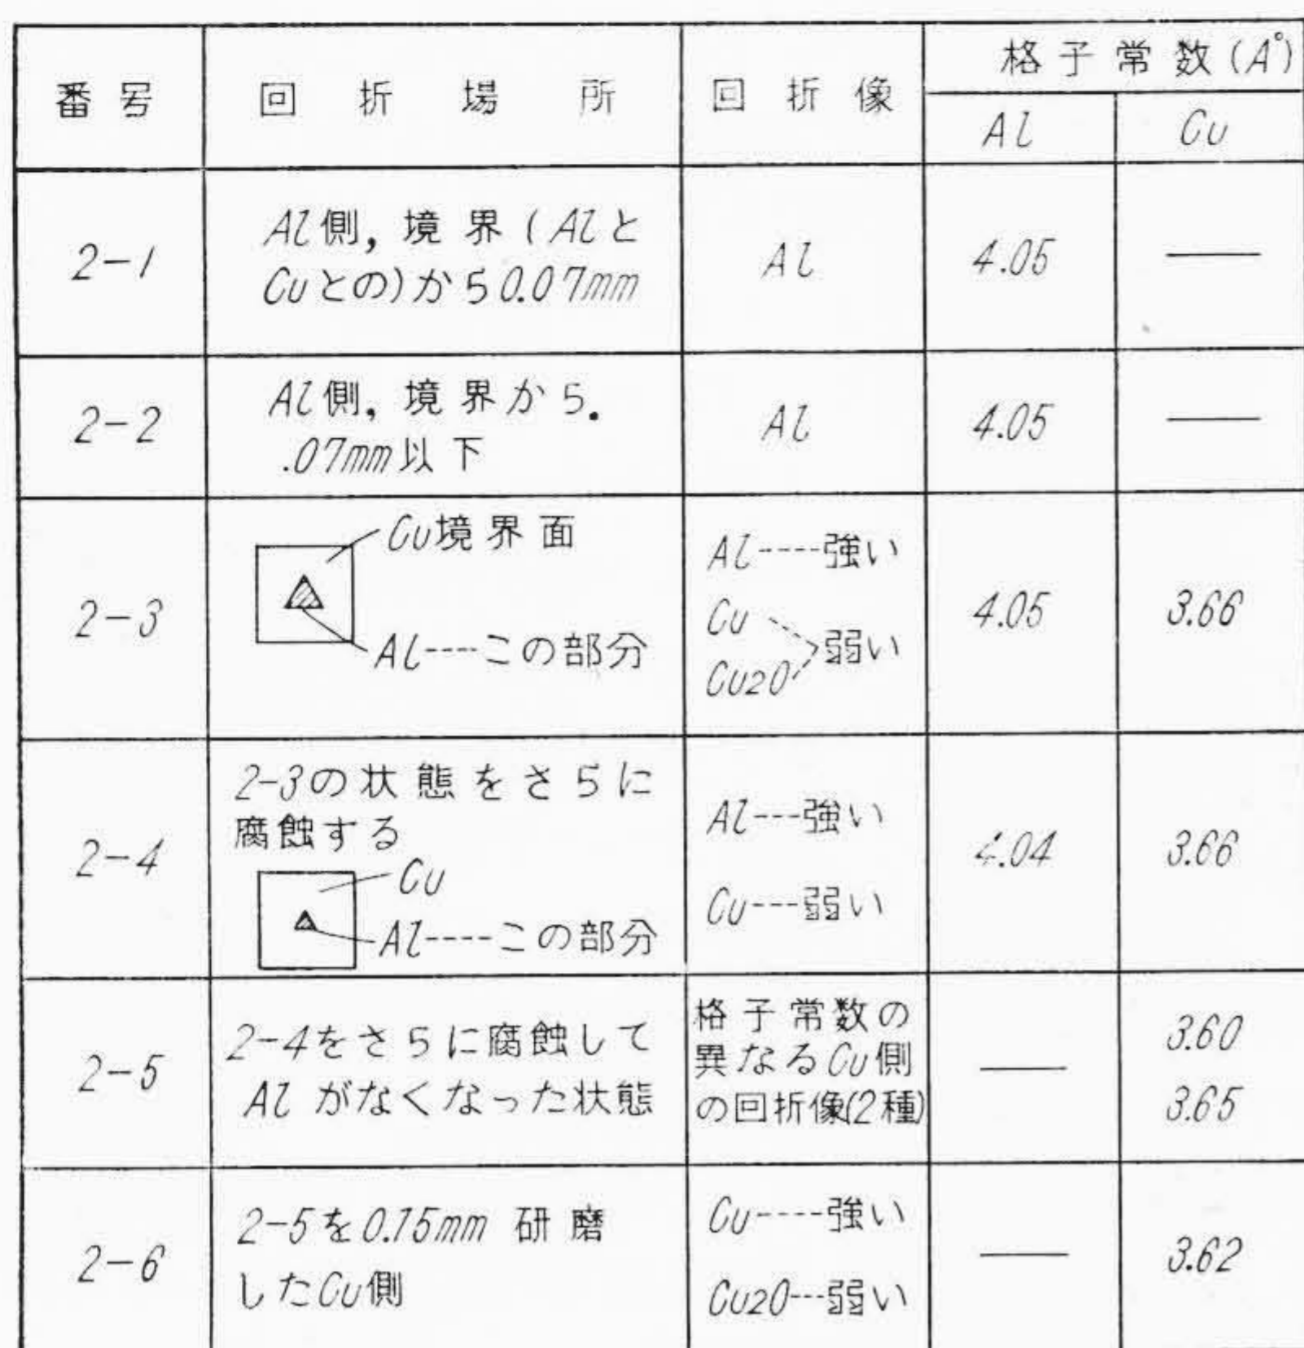 番号 回折場所 回折像 格子常数(A°)
Al Cu
2-1 Al側,境界(Alと
Cuとの)から0.07mm Al 4.05 ―
2-2 Al側,境界から.
.07mm以下 Al 4.05 ―
2-3 Cu境界面
Al----この部分
Al----強い
Cu
Cu2O 弱い
4.05 3.66
2-4 2-3の状態をさらに
腐蝕する
Cu
Al----この部分
Al---強い
Cu---弱い
4.04 3.66
2-5 2-4をさらに腐蝕して
Alがなくなった状態
格子常数の
異なるCu側
の回折像(2種)
― 3.60
3.65
2-6 2-5を0.15mm研磨
したCu側
Cu----強い
Cu2O---弱い
― 3.62